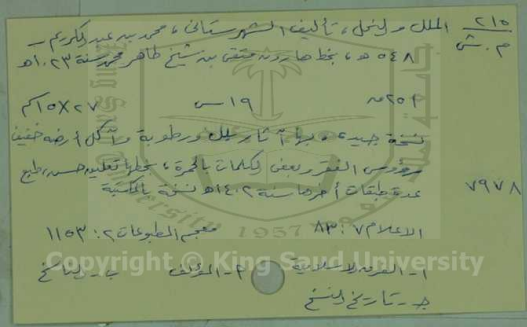 ٢١٥ الملل والنحل، تأليف الشهرستاني، محمد بن عبدالكريم -
م.ش ٥٤٨ هـ، بخط هارون متقي بن شيخ طاهر محمد سنة ١٠٢٣هـ
٢٥٢ق ١٩س ٢٧×١٥سم
نسخة جيدة، بها آثار بلل ورطوبة وتآكل أرضة خفيف
رؤوس الفقر وبعض الكلمات بالحمرة، خطها تعليق حسن، طبع
٧٩٧٨ عدة طبقات آخرها سنة ١٤٠٢هـ نسخة بالمكتبة
الاعلام ٧: ٨٣ معجم المطبوعات ٢: ١١٥٣
أ- الفرق الإسلامية أ- المؤلف ب- الناسخ
جـ- تاريخ النسخ
1957
University
Copyright © King Saud University